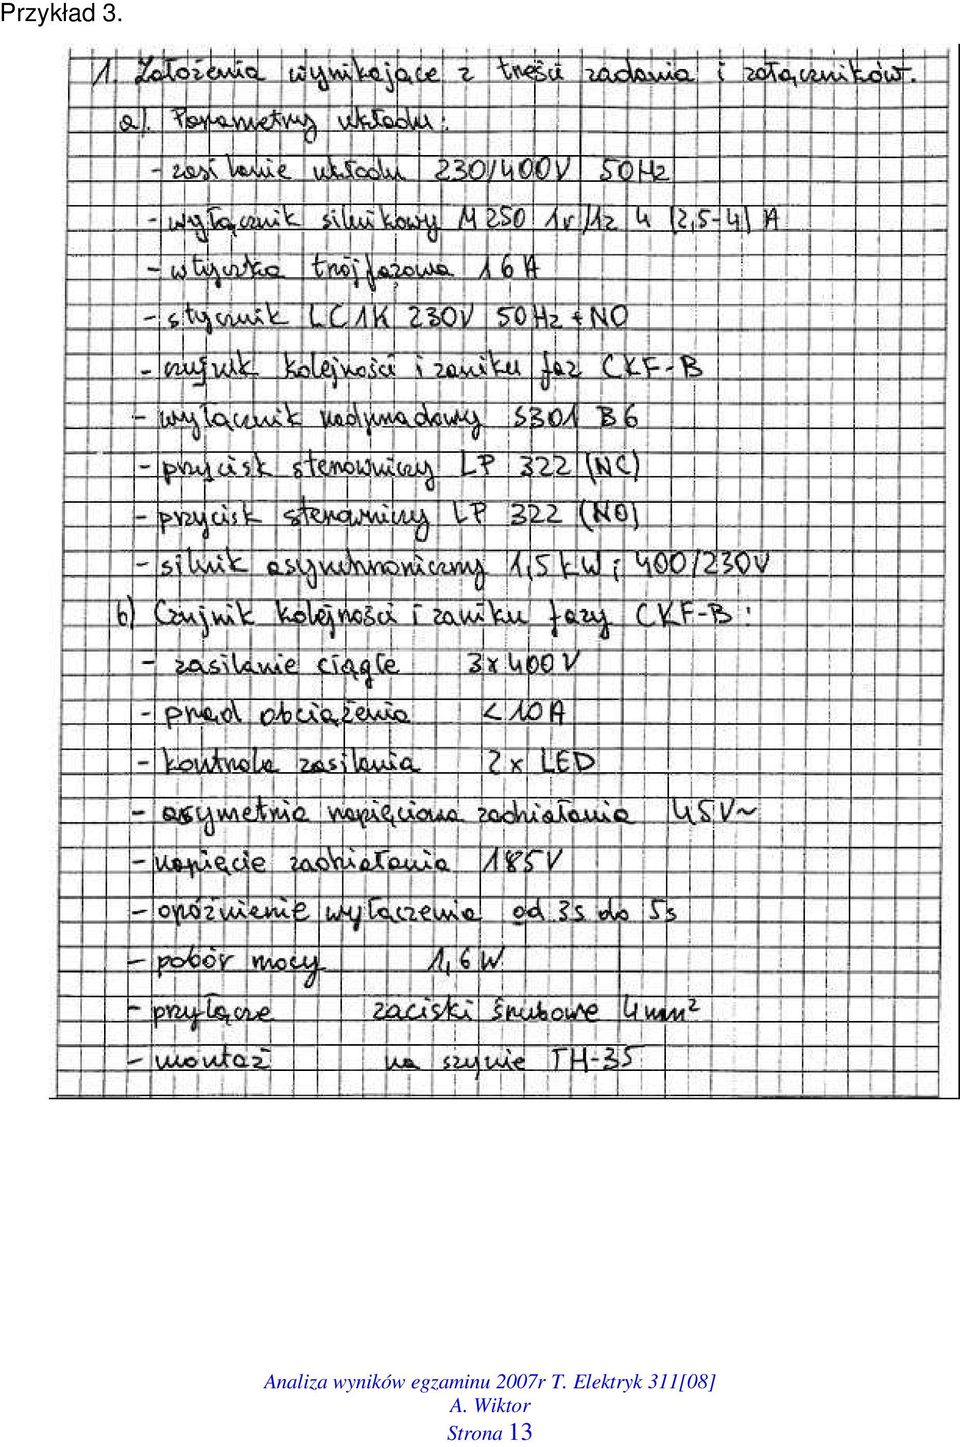 Przykład 3.
1. Założenia wynikające z treści zadania i załączników.
a). Parametry układu:
- zasilanie układu 230/400V 50Hz
- wyłącznik silnikowy M250 1r/1z 4 (2,5-4) A
- wtyczka trójfazowa 16A
- stycznik LC1K 230V 50Hz + NO
- czujnik kolejności i zaniku faz CKF-B
- wyłącznik nadprądowy S301 B6
- przycisk sterowniczy LP 322 (NC)
- przycisk sterowniczy LP 322 (NO)
- silnik asynchroniczny 1,5kW; 400/230V
b) Czujnik kolejności i zaniku fazy CKF-B:
- zasilanie ciągłe 3x400V
- prąd obciążenia <10A
- kontrola zasilania 2x LED
- asymetria napięciowa zadziałania 45V~
- napięcie zadziałania 185V
- opóźnienie wyłączenia od 3s do 5s
- pobór mocy 1,6W
- przyłącze zaciski śrubowe 4mm²
- montaż na szynie TH-35
Analiza wyników egzaminu 2007r T. Elektryk 311[08]
A. Wiktor
Strona 13